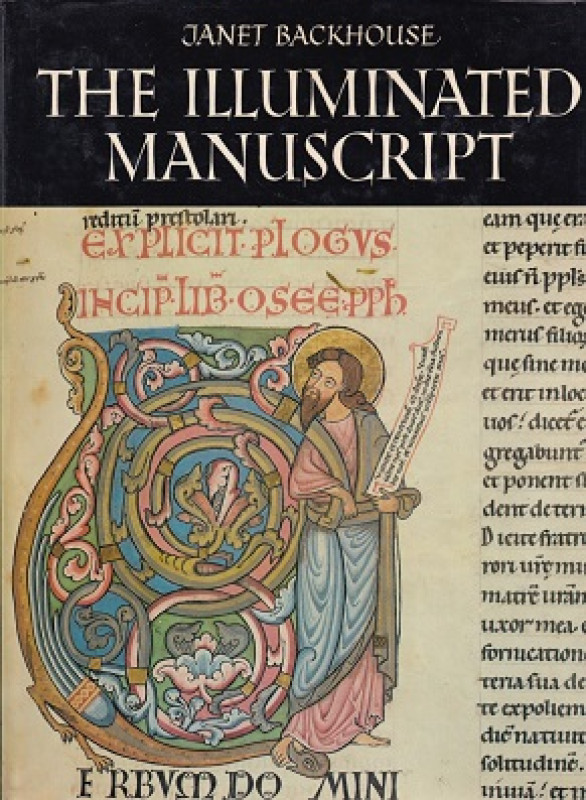 JANET BACKHOUSE
THE ILLUMINATED
MANUSCRIPT
reditū prestolari.
EXPLICIT·PLOGVS·
INCIP̄·LIB̄·OSEE·PPH̄
ERBVM DO MINI
eam que
et peperit
eius n̄ ppl's
meus. et ego
merus
que sine
et erit in loc
uos! dicet
gregabunt
et ponent
dent de terr
Dicite fratri
rori ur̄e
matrē urām
uxor mea.
fornication
teria sua de
te expoliem
diē natiuit
solitudinē.
inuiā! et